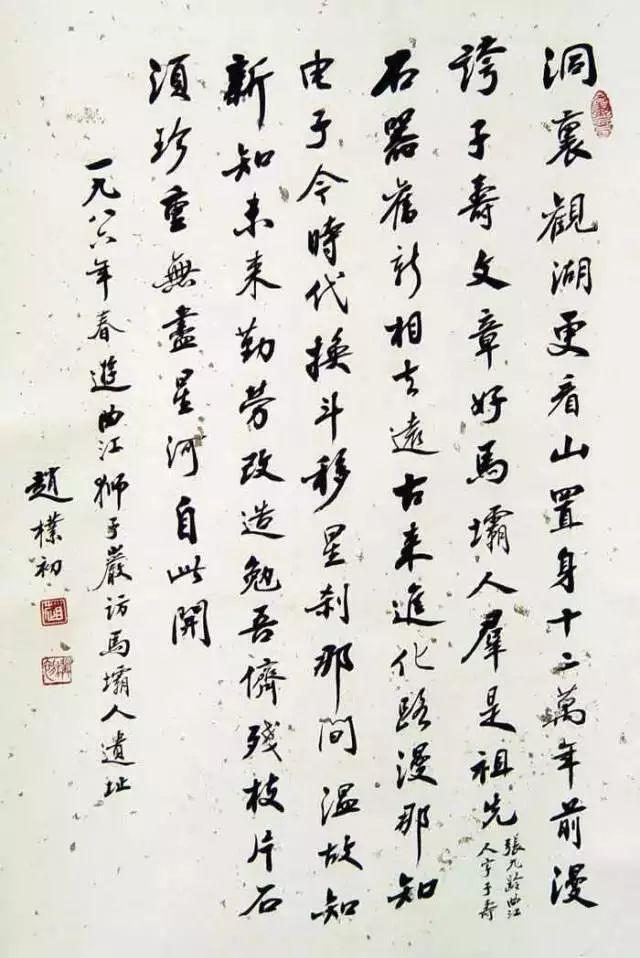 洞裏觀湖更看山置身十二萬年前漫
誇子壽文章好馬壩人羣是祖先
張九齡曲江
人字子壽
石器舊新相去遠古来進化路漫那知
电子今時代換斗移星刹那間温故知
新知未来勤劳改造勉吾儕殘枝片石
須珍重無盡星河自此開
一九八六年春遊曲江狮子巖訪馬壩人遺址
趙樸初